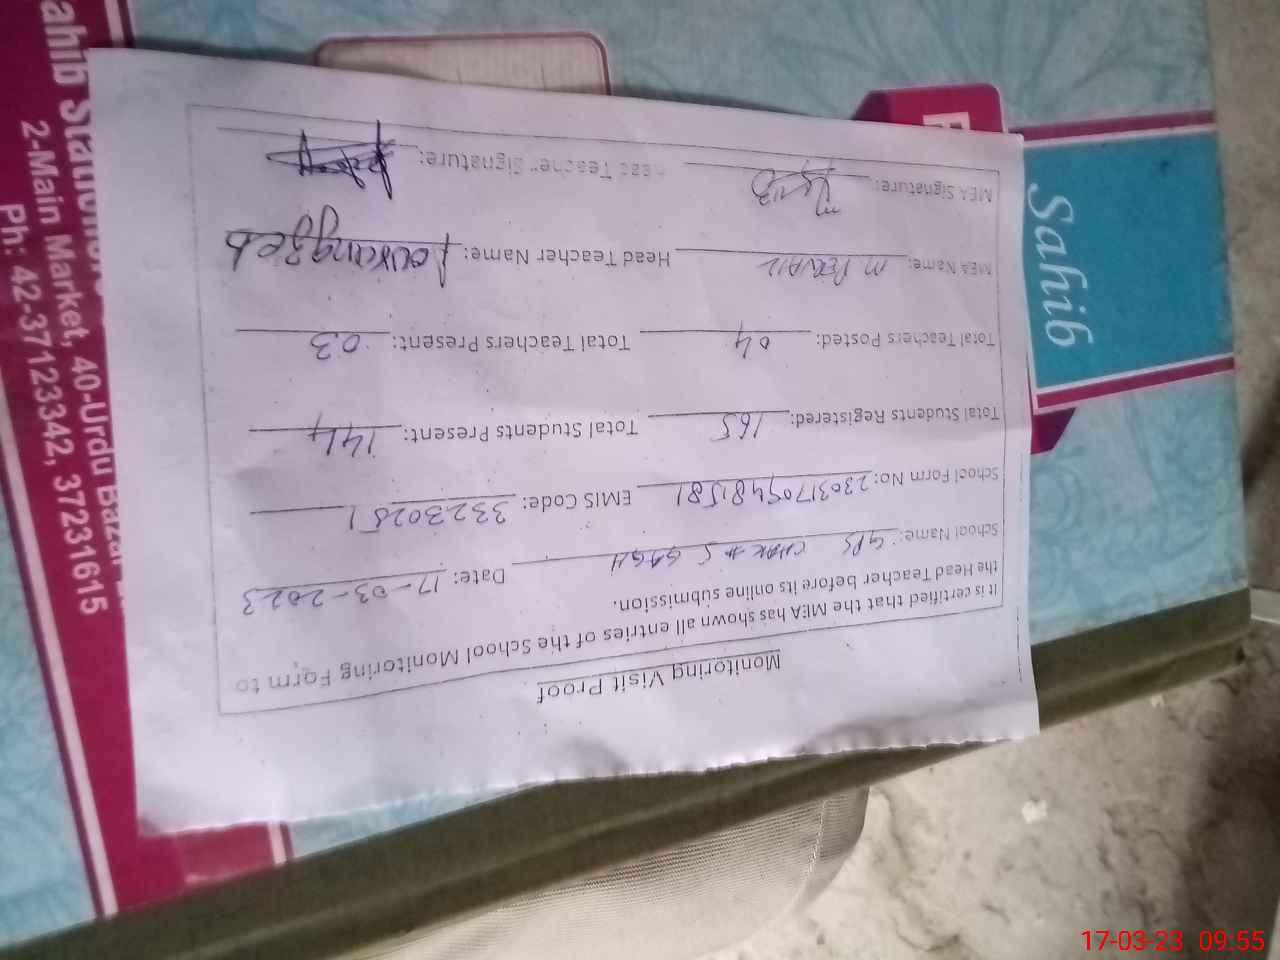 Monitoring Visit Proof
It is certified that the MEA has shown all entries of the School Monitoring Form to
the Head Teacher before its online submission.
School Name: GPS CHAK # 5 Date: 17-03-2023
School Form No: 230317094815181 EMIS Code: 33230251
Total Students Registered: 165 Total Students Present: 144
Total Teachers Posted: 04 Total Teachers Present: 03
MEA Name: M PERVAIZ Head Teacher Name: Aourangzeb
MEA Signature: Head Teacher Signature:
Sahib
ahib
2-Main Market, 40-Urdu Bazar
Ph: 42-37123342, 37231615
17-03-23 09:55